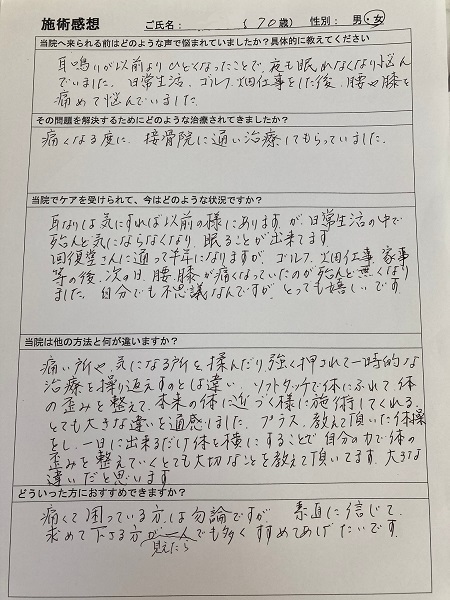 施術感想 ご氏名： （70歳） 性別： 男・女
当院へ来られる前はどのような声で悩まれていましたか？具体的に教えてください
耳鳴りが以前よりひどくなったことで、夜も眠れなくなり悩ん
でいました。日常生活、ゴルフ、畑仕事をした後、腰や膝を
痛めて悩んでいました。
その問題を解決するためにどのような治療されてきましたか？
痛くなる度に、接骨院に通い治療してもらっていました。
当院でケアを受けられて、今はどのような状況ですか？
耳なりは気にすれば以前の様にありますが、日常生活の中で
殆んど気にならなくなり、眠ることが出来てます。
回復堂さんに通って半年になりますが、ゴルフ、畑仕事、家事
等の後、次の日、腰、膝が痛くなっていたのが殆んど無くなり
ました。自分でも不思議なんですが、とっても嬉しいです
当院は他の方法と何が違いますか？
痛い所や、気になる所を、揉んだり強く押されて一時的な
治療を繰り返えすのとは違い、ソフトタッチで体にふれて、体
の歪みを整えて、本来の体に近づく様に施術してくれる。
とても大きな違いを通感しました。プラス、教えて頂いた体操
をし、一日に出来るだけ体を横にすることで自分の力で体の
歪みを整えていくとても大切なことを教えて頂いてます。大きな
違いだと思います
どういった方におすすめできますか？
痛くて困っている方は勿論ですが 素直に信じて、
求めて下さる方が一人でも多く すすめてあげたいです。
見えたら